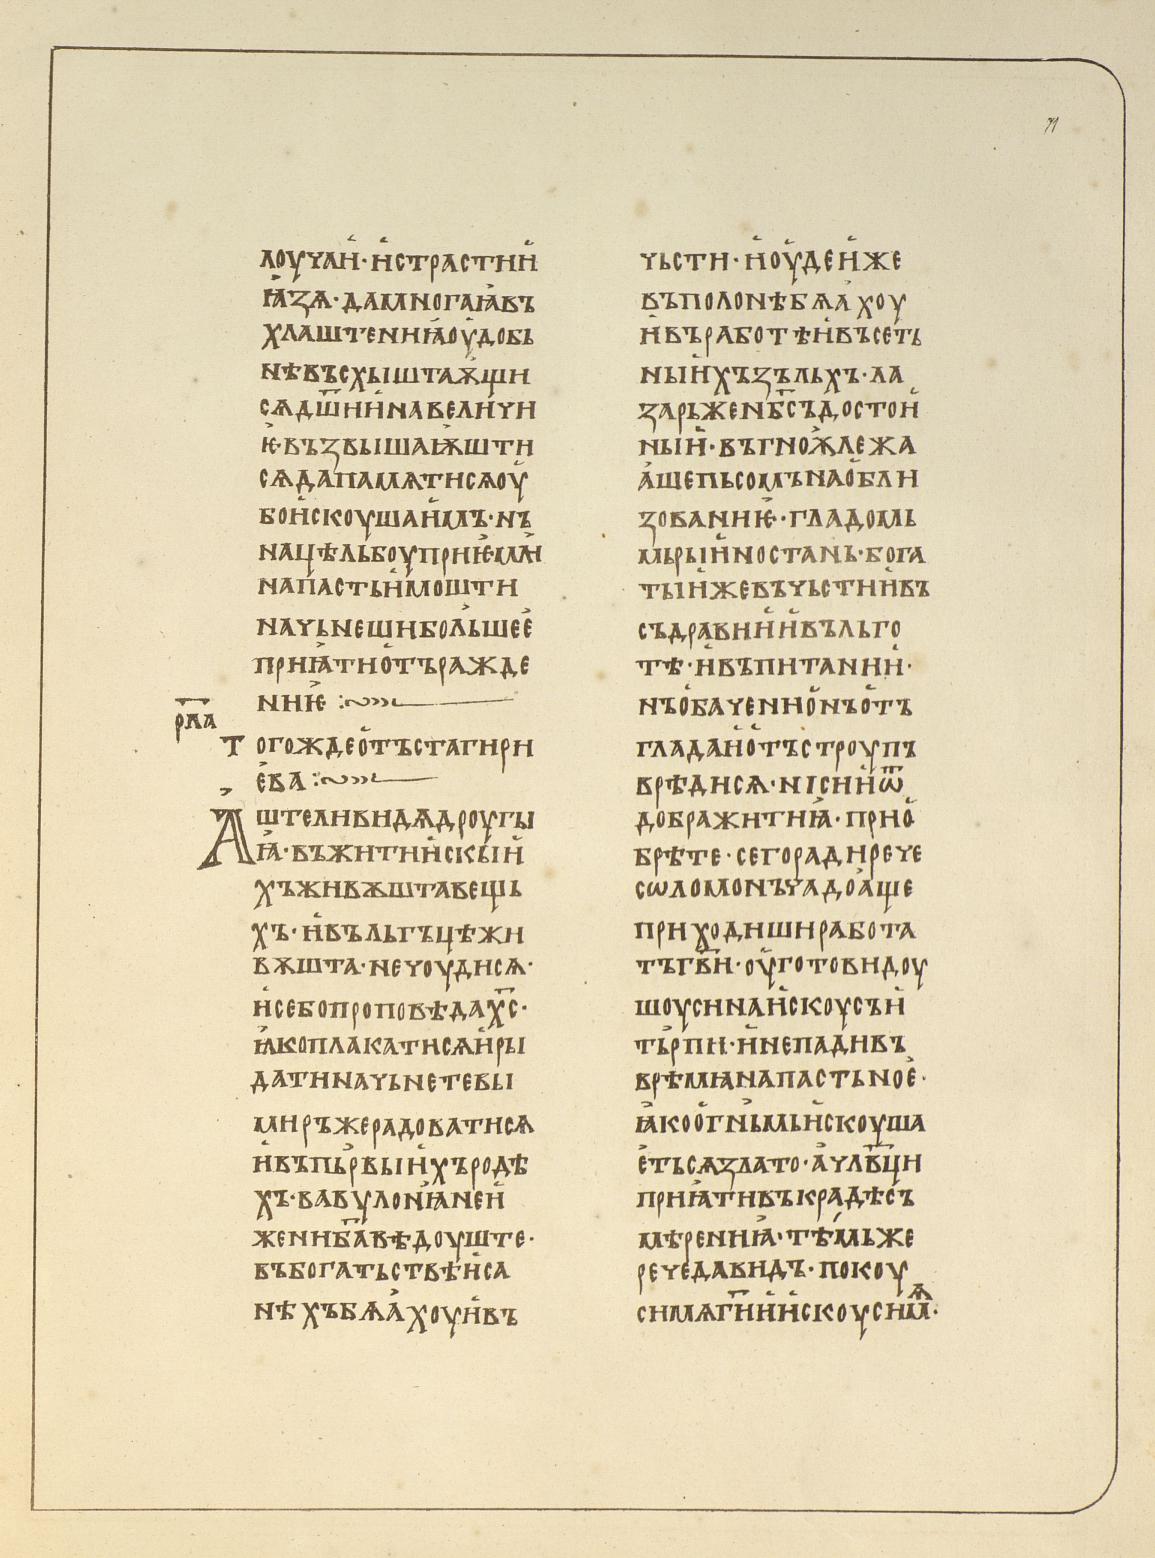 71
лоучаи҆· и҆страстии҆
ꙗ҆зѧ· дамногаꙗ҆въ
хлаштениꙗ҆оу҆добь
нѣвъсхыштаѫщи
сѧдш҃ии҆навеличи
ѥ҆· възвышаѭ҆шти
сѧдапамѧтисѧоу҆
бои҆скоушаи҆мъ· нъ
нацѣльбоуприѥ҆млѧ
напастьи҆мошти
начьнешибольшеѥ҆
приꙗ҆тио҆търажде
ниѥ҆
рл҃а
тогождео҆тъстагири
е҆ва
Аштеливидѧдроугы
ꙗ҆· въжитии҆скыи҆
хъживѫштавещь
хъ· и҆вългъцѣжи
вѫшта· нечоудисѧ·
и҆себопроповѣдах҃с·
ꙗ҆коплакатисѧи҆ры
датиначьнетевы
миръжерадоватисѧ
и҆въпьрвыи҆хъродѣ
хъ· вавулониꙗ҆неи҆
жениб҃авѣдоуште·
въбогатьствѣи҆са
нѣхъбѧа҆хоуи҆въ
чьсти· и҆оу҆деи҆же
въполонѣбѧа҆хоу
и҆въработѣи҆въсеть
ныи҆хъзъльхъ· ла
зарьженб҃съдостои҆
ныи҆· въгноѫлежа
а҆щепьсомънао҆бли
зованиѥ҆· гладомь
мьрыи҆ностань· бога
тыи҆жевъчьстии҆въ
съдравии҆и҆вльго
тѣ· и҆въпитании҆·
нъо҆баченио҆нъо҆тъ
гладаи҆о҆тъстроупъ
врѣдисѧ· нісниѿ
дображитиꙗ҆· прио҆
брѣте· сегорадирече
сѡломонъчадоа҆ще
приходиширабота
тъгв҃и· оу҆готовидоу
шоусинаи҆скоусъи҆
тьрпи· и҆непадивъ
врѣмѧнапастьное҆·
ꙗ҆коо҆гньмьи҆скоуша
е҆тьсѧзлато· а҆члв҃ци
приꙗтивъкрадѣсъ
мѣрениꙗ҆· тѣмьже
речедавидъ· покоу
симѧг҃ии҆и҆скоусимѧ·